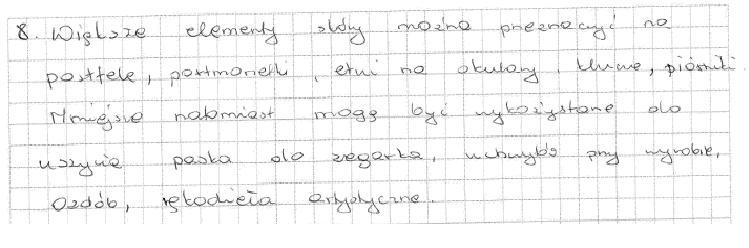 8. Większe elementy skóry można przeznaczyć na
portfele, portmonetki, etui na okulary, piórniki.
Mniejsze natomiast mogą być wykożystane do
uszycia paska do zegarka, przy wyrobie,
ozdób, rękodzieła artystyczne.